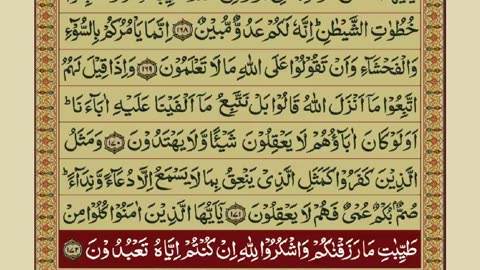 خُطُوٰتِ الشَّيْطٰنِ ؕ اِنَّهٗ لَكُمْ عَدُوٌّ مُّبِيْنٌ ﴿۱۶۸﴾ اِنَّمَا يَاْمُرُكُمْ بِالسُّوْٓءِ
وَالْفَحْشَآءِ وَاَنْ تَقُوْلُوْا عَلَى اللّٰهِ مَا لَا تَعْلَمُوْنَ ﴿۱۶۹﴾ وَاِذَا قِيْلَ لَهُمُ
اتَّبِعُوْا مَآ اَنْزَلَ اللّٰهُ قَالُوْا بَلْ نَتَّبِعُ مَآ اَلْفَيْنَا عَلَيْهِ اٰبَآءَنَا ؕ
اَوَلَوْ كَانَ اٰبَآؤُهُمْ لَا يَعْقِلُوْنَ شَيْئًا وَّلَا يَهْتَدُوْنَ ﴿۱۷۰﴾ وَمَثَلُ
الَّذِيْنَ كَفَرُوْا كَمَثَلِ الَّذِيْ يَنْعِقُ بِمَا لَا يَسْمَعُ اِلَّا دُعَآءً وَّنِدَآءً ؕ
صُمٌّۢ بُكْمٌ عُمْيٌ فَهُمْ لَا يَعْقِلُوْنَ ﴿۱۷۱﴾ يٰٓاَيُّهَا الَّذِيْنَ اٰمَنُوْا كُلُوْا مِنْ
طَيِّبٰتِ مَا رَزَقْنٰكُمْ وَاشْكُرُوْا لِلّٰهِ اِنْ كُنْتُمْ اِيَّاهُ تَعْبُدُوْنَ ﴿۱۷۲﴾